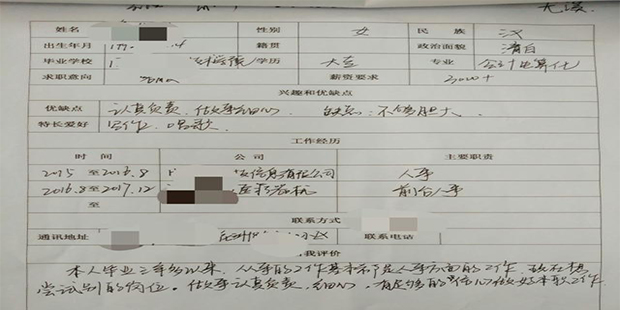 姓名 性别 女 民族 汉
出生年月 197 4 籍贯 政治面貌 清白
毕业学校 学历 大专 专业 会计电算化
求职意向 薪资要求 3000+
兴趣和优缺点
优缺点 认真负责、做事细心 缺点：不够胆大。
特长爱好 写作、唱歌
工作经历
时间 公司 主要职责
2015 至 2016.8 信息有限公司 人事
2016.8 至 2017.12 医疗器械 前台人事
至
联系方式
通讯地址 小区 联系电话
我评价
本人毕业三年多以来，从事的工作基本都是人事方面的工作，现在想
尝试别的岗位。做事认真负责、细心，有足够的信心做好本职工作